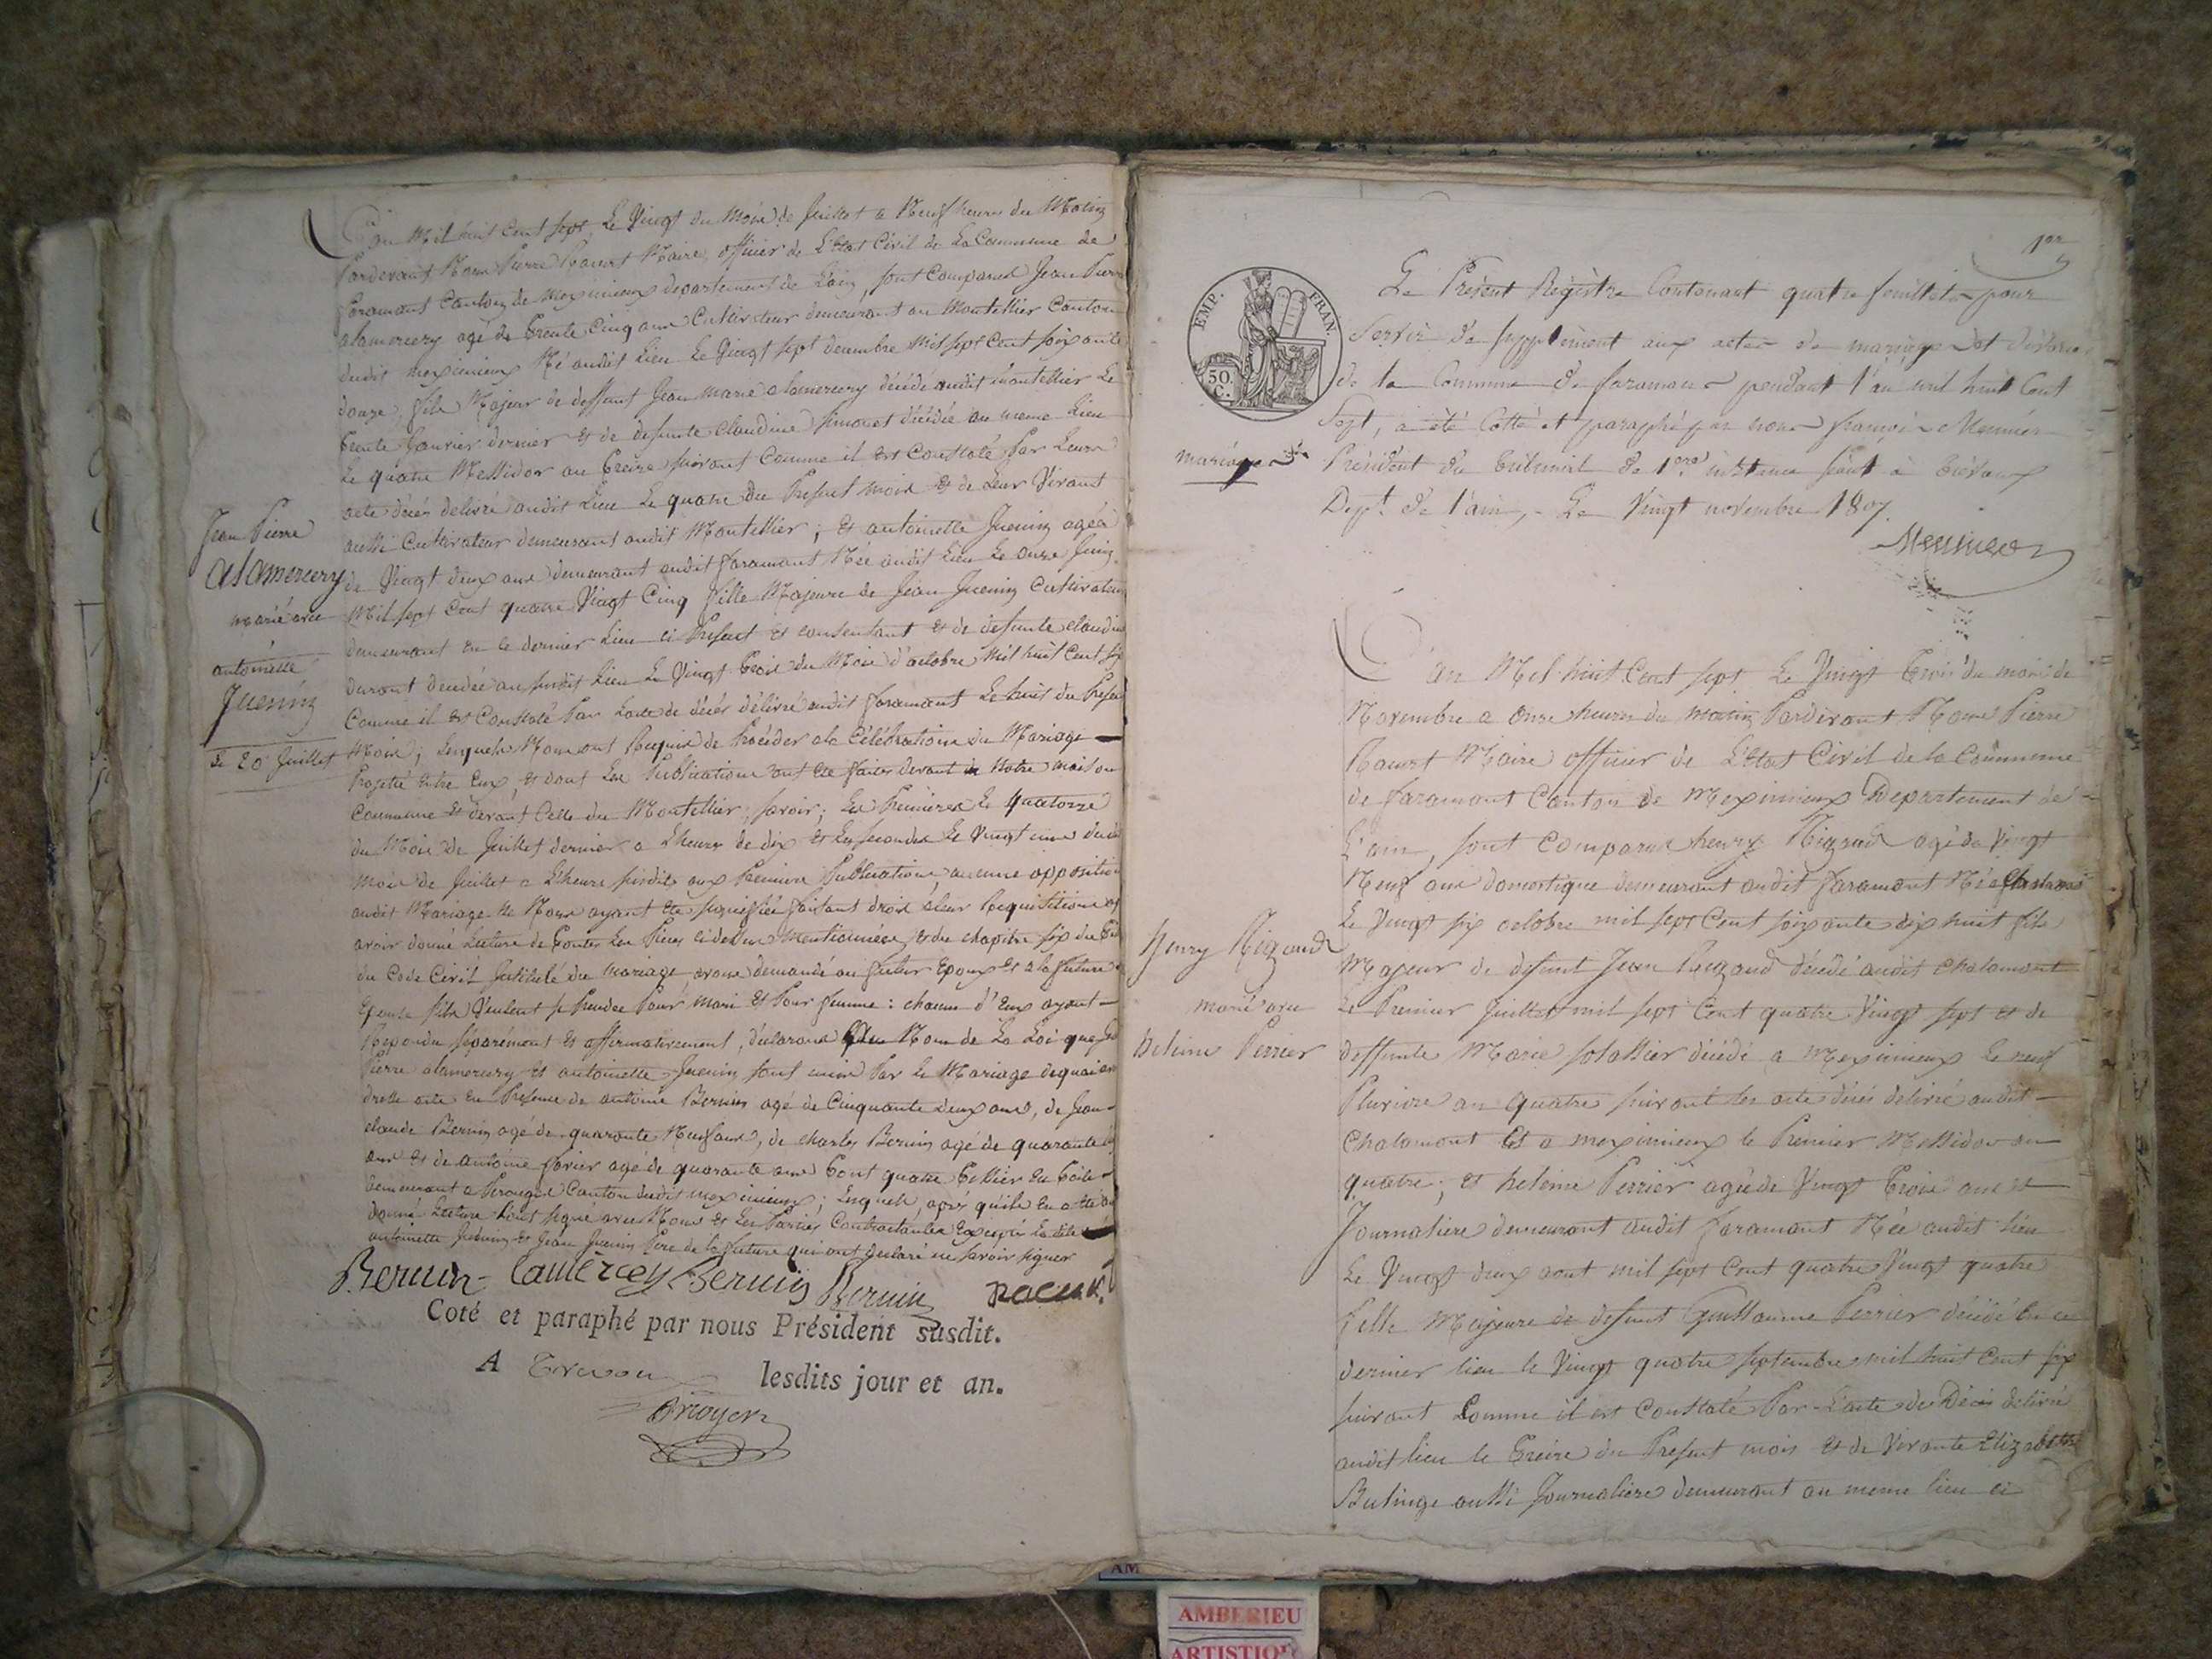 L'an Mil huit Cent sept, Le Vingt du Mois de Juillet a Neuf heures du Matin
Pardevant Nous Pierre Racurt Maire, officier de L'Etat Civil de La Commune de
faramant Canton de Meximieux departement de L'ain, sont Comparus Jean Pierre
alamercery agé de trente Cinq ans Cultivateur demeurant au Montellier Canton
dudit meximieux Né audit Lieu Le Vingt sept decembre Mil sept Cent soixante
douze, fils Majeur de deffunt Jean marie alamercery décédé audit montellier Le
trente Janvier dernier et de defunte claudine simonet décédée au meme Lieu
Le quatre Messidor an treize suivant Comme il est Constaté Par Leurs
acte décés delivré audit Lieu Le quatre du Present mois et de Leur Vivant
aussi Cultivateur demeurant audit Montellier ; Et antoinette Juenin agée
de Vingt deux ans demeurant audit faramant Née audit Lieu Le onze Juin
Mil sept Cent quatre Vingt Cinq fille Majeure de Jean Juenin Cultivateur
demeurant en le dernier Lieu ci Present et consentant et de defunte claudine
durant decedée au susdit Lieu Le Vingt trois du Mois d'octobre Mil huit Cent six
Comme il est Constaté Par Lacte de décés délivré audit faramant Le huit du Present
Mois ; Lesquels Nous ont Requis de Procéder a la Célébration du Mariage
Projetté entre Eux, et dont Les Publications ont été faites devant Notre maison
Commune et devant Celle du Montellier, savoir ; La Premiere Le quatorze
du Mois de Juillet dernier a L'heure de dix et La seconde Le Vingt une dudit
mois de Juillet a L'heure susdite aux Premiere Publications, aucune opposition
audit Mariage Ne Nous ayant été signifiée faisant droit a leur Requisition après
avoir donné Lecture de toutes Les Pieces ci dessus Mentionnées, et du chapitre six du
du Code Civil Intitulé du Mariage, avons demandé au futur Epoux et a la future
Epouse s'ils Veulent se Prendre Pour Mari et Pour femme : chacun d'Eux ayant
Repondu séparément et affirmativement, déclarons au Nom de La Loi que Jean
Pierre alamercery et antoinette Juenin sont unis Par Le Mariage dequoi avons
dressé acte En Presence de antoine Bernin agé de Cinquante deux ans, de Jean
claude Bernin agé de quarante Neuf ans, de charles Bernin agé de quarante
ans et de antoine favier agé de quarante ans tout quatre tellier En toile
demeurant a Perouges Canton dudit meximieux ; Lesquels, aprés qu'ils En a été
donné Lecture L'ont signé avec Nous et Les Parties Contractantes Excepté Ladite
antoinette Juenin et Jean Juenin Pere de la future qui ont declaré ne savoir signer
Bernin Lamercery Bernin Bernin Racurt
Coté et paraphé par nous Président susdit.
A Trevoux lesdits jour et an.
Jean Pierre
alamercery
marié avec
antoinette
Juenin
Le 20 Juillet
1er
EMP. FRAN.
50. C.
Le Présent Registre Contenant quatre feuillets pour
Servir de supplément aux actes de mariage et divorce
de la Commune de faramans pendant l'an mil huit Cent
Sept, a été Cotté et paraphé par nous françois Meunier
Président du tribunal de 1ere instance séant à Trévoux
Dept. de l'ain, - Le Vingt novembre 1807.
Meunier
mariages
L'an Mil huit Cent sept Le Vingt trois du mois de
Novembre a onze heures du matin Pardevant Nous Pierre
Racurt Maire officier de L'Etat Civil de la Commune
de faramant Canton de Meximieux Departement de
L'ain, sont Comparus henry Rigaud agé de Vingt
Neuf ans domestique demeurant audit faramant Né a Chalamont
Le Vingt six octobre mil sept Cent soixante dix huit fils
Majeur de defunt Jean Rigaud décédé audit Chalamont
Le Premier Juillet mil sept Cent quatre Vingt sept et de
deffunte Marie solassier décédé a Meximieux Le neuf
Pluviose an quatre suivant les acte décés delivré audit
Chalamont Et a meximieux le Premier Messidor an
quatre ; et heleine Perrier agée de Vingt trois ans
Journaliere demeurant audit faramant Née audit lieu
Le Vingt deux aout mil sept Cent quatre Vingt quatre
fille Majeure de defunt Guillaume Perrier décédé En ce
dernier lieu le Vingt quatre septembre mil huit Cent six
suivant Comme il est Constaté Par L'acte de Décés delivré
audit lieu le treize du Present mois et de Vivante Elizabeth
Bulinge aussi Journaliere demeurant au meme lieu ci
Henry Rigaud
marié avec
Heleine Perrier
AM
AMBERIEU
ARTISTIQUE